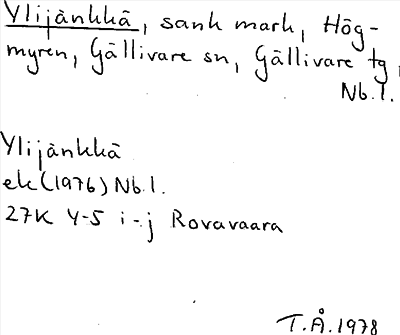 Ylijänkkä, sank mark, Hög-
myren, Gällivare sn, Gällivare tg,
Nb.l.
Ylijänkkä
ek(1976) Nb.l.
27K 4-5 i-j Rovavaara
T.Å.1978